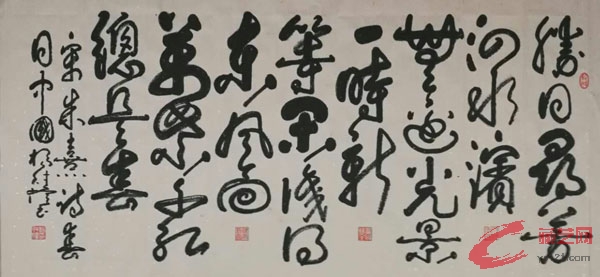 勝日尋芳
泗水濱
無邊光景
一時新
等閒識得
東風面
萬紫千紅
總是春
宋朱熹詩春
日中國